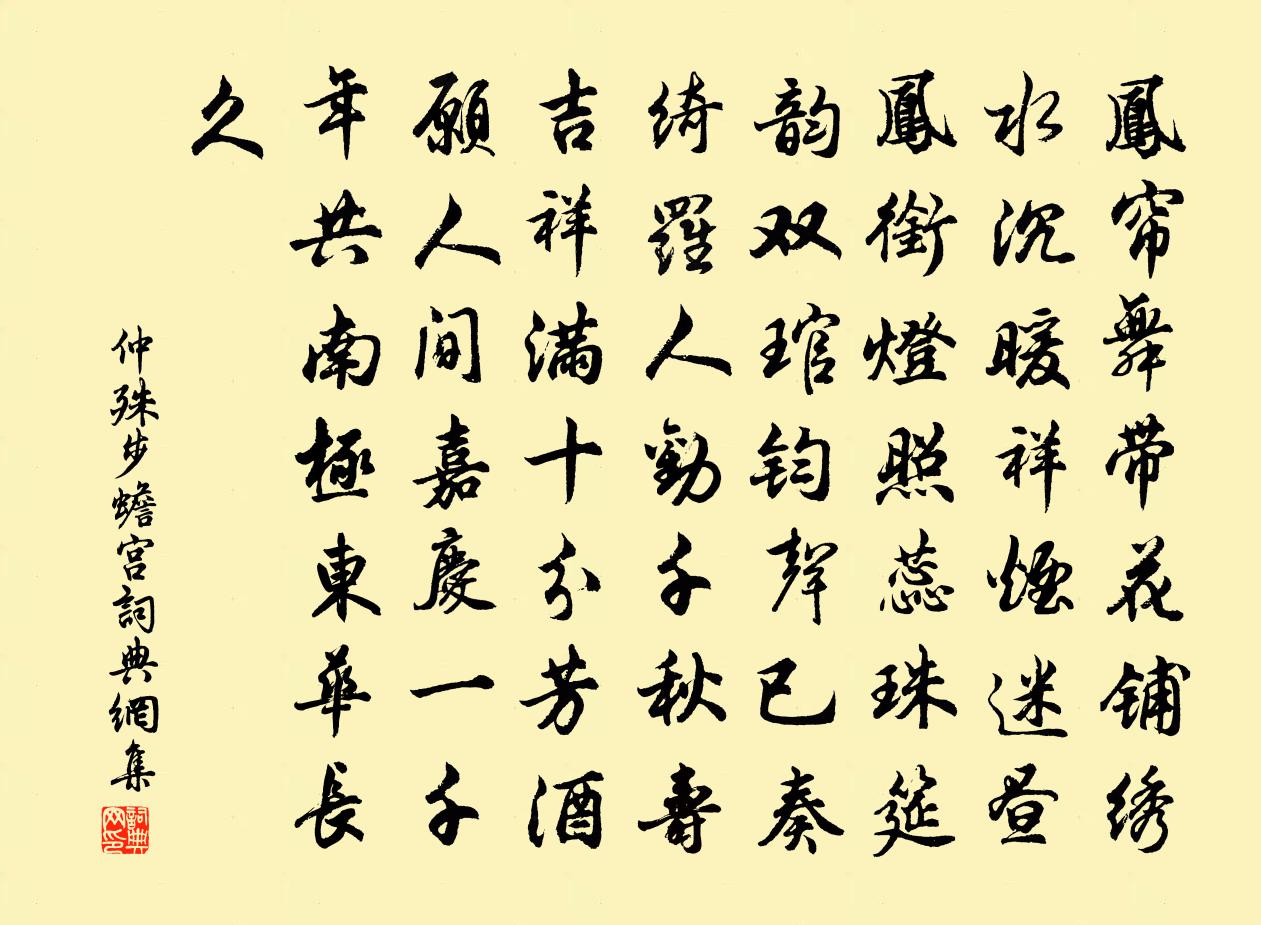 鳳帘舞带花铺绣
水沉暖祥煙迷昼
鳳銜燈照蕊珠筵
韵双琯钧聲已奏
綺羅人勸千秋壽
吉祥满十分芳酒
願人间嘉慶一千
年共南極東華長
久
仲殊步蟾宫詞典網集
詞典网印